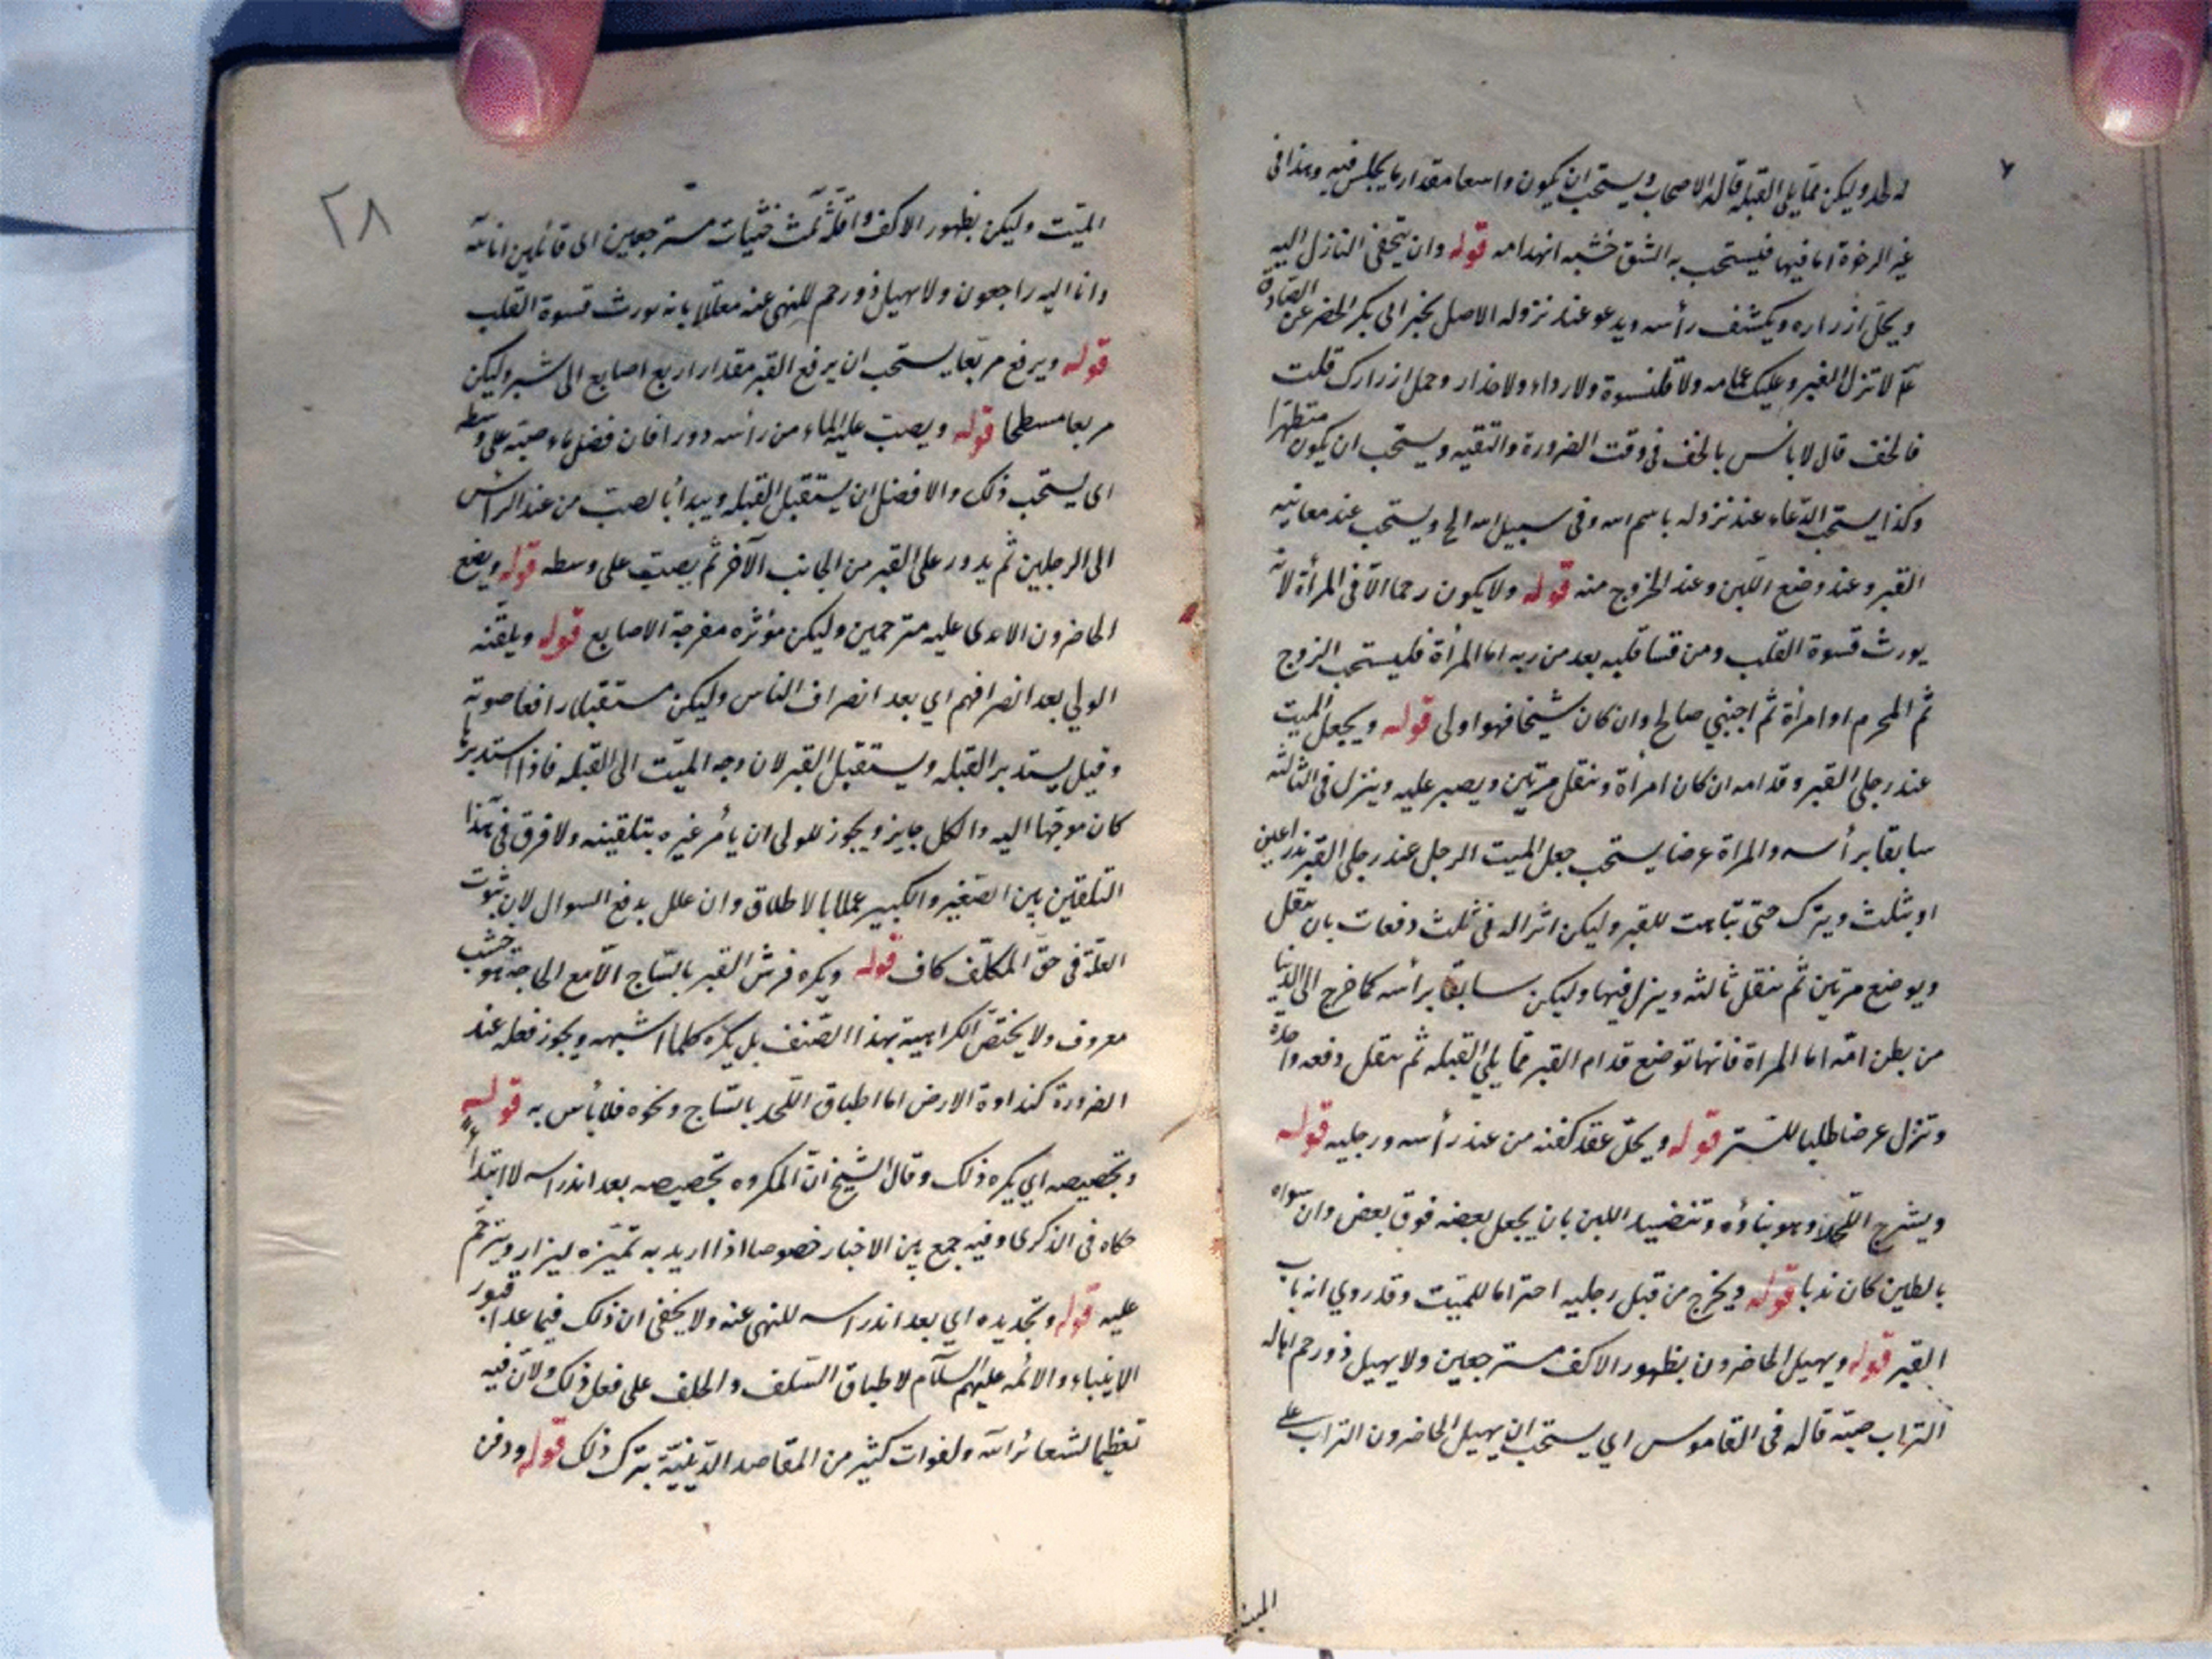 له لحد وليكن مما يلي القبلة قاله الاصحاب ويستحب ان يكون واسعا مقدار ما يجلس فيه وهذا في
غير الرخوة اما فيها فيستحب به الشق خشية انهدامه قوله وان يتحفى النازل اليه
ويحل ازراره ويكشف رأسه ويدعو عند نزوله الاصل بخبر ابي بكر الحضرمي عن الصادق
عم لا تنزل القبر وعليك عمامه ولا قلنسوة ولا رداء ولا حذاء وحل ازرارك قلت
فالخف قال لا بأس بالخف في وقت الضرورة والتقيه ويستحب ان يكون متطهرا
وكذا يستحب الدعاء عند نزوله باسم الله وفي سبيل الله الخ ويستحب عند معاينه
القبر وعند وضع اللبن وعند الخروج منه قوله ولا يكون رحما الا في المرأة لانه
يورث قسوة القلب ومن قسا قلبه بعد من ربه اما المرأة فليستحب الزوج
ثم المحرم او امرأة ثم اجنبي صالح وان كان شيخا فهو اولى قوله ويجعل الميت
عند رجلي القبر وقدامه ان كان امرأة وينقل مرتين ويصبر عليه وينزل في الثالثه
سابقا برأسه والمراة عرضا يستحب جعل الميت الرجل عند رجلي القبر بذراعين
او بثلث ويترك حتى يتأهب للقبر وليكن انزاله في ثلث دفعات بان ينقل
ويوضع مرتين ثم ينقل ثالثه وينزل فيها وليكن سابقا برأسه كما خرج الى الدنيا
من بطن امه اما المراة فانها توضع قدام القبر مما يلي القبله ثم ينقل دفعه واحدة
وتنزل عرضا طلبا للستر قوله ويحل عقد كفنه من عند رأسه ورجليه قوله
ويشرج اللحد وهو بناؤه وتنضيد اللبن بان يجعل بعضه فوق بعض وان سواه
بالطين كان ندبا قوله ويخرج من قبل رجليه احتراما للميت وقد روي انه باب
القبر قوله ويهيل الحاضرون بظهور الاكف مسترجعين ولا يهيل ذو رحم اهاله
التراب صبه قاله في القاموس اي يستحب ان يهيل الحاضرون التراب على
الميت
٢٨
الميت وليكن بظهور الاكف واقله ثلث حثيات مسترجعين اى قائلين انا لله
وانا اليه راجعون ولا يهيل ذو رحم للنهي عنه معللا بانه يورث قسوة القلب
قوله ويرفع مربعا يستحب ان يرفع القبر مقدار اربع اصابع الى شبر وليكن
مربعا مسطحا قوله ويصب عليه الماء من رأسه دورا فان فضل ماء صبه على وسطه
اى يستحب ذلك والافضل ان يستقبل القبله ويبدأ بالصب من عند الراس
الى الرجلين ثم يدور على القبر من الجانب الآخر ثم يصب على وسطه قوله ويضع
الحاضرون الايدى عليه مترحمين وليكن مؤثره مفرجة الاصابع قوله ويلقنه
الولي بعد انصرافهم اي بعد انصراف الناس وليكن مستقبلا رافعا صوته
وقيل يستدبر القبله ويستقبل القبر لان وجه الميت الى القبله فاذا استدبرها
كان موجها اليه والكل جايز ويجوز للولى ان يأمر غيره بتلقينه ولا فرق في هذا
التلقين بين الصغير والكبير عملا بالاطلاق وان علل بدفع السوال لان ثبوت
العلة في حق المكلف كاف قوله ويكره فرش القبر بالساج الا مع الحاجة هو خشب
معروف ولا يختص الكراهيه بهذا الصنف بل يكره كلما اشبهه ويجوز فعله عند
الضرورة كنداوة الارض اما اطباق اللحد بالساج ونحوه فلا بأس به قوله
وتجصيصه اي يكره ذلك وقال الشيخ ان المكروه تجصيصه بعد اندراسه لا ابتداء
حكاه في الذكرى وفيه جمع بين الاخبار خصوصا اذا اريد به تميزه ليزار ويترحم
عليه قوله وتجديده اي بعد اندراسه للنهي عنه ولا يخفى ان ذلك فيما عدا قبور
الانبياء والائمه عليهم السلام لاطباق السلف والخلف على فعل ذلك ولان فيه
تعظيما لشعائر الله ولفوات كثير من المقاصد الدينيه بترك ذلك قوله ودفن